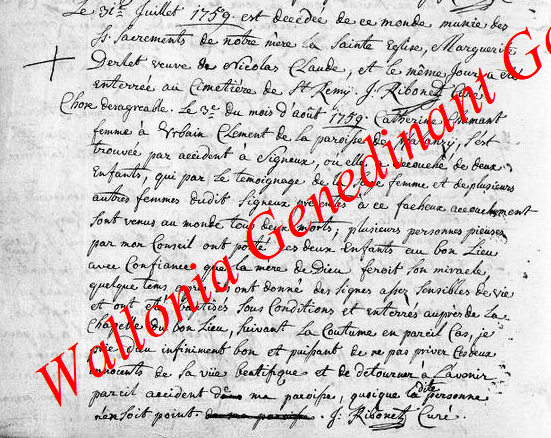 Le 31e. Juillet 1759. est decedee de ce monde munie des
Ss. Sacrements de notre mere la Sainte Eglise, Marguerite
Derlet veuve de Nicolas Claude, et le même Jour a été
enterrée au Cimetiere de St Remy. J. Ribonet Curé
Chose desagreable. Le 3e. du mois d'août 1759. Catherine
femme à Urbain Clement de la paroisse de s'est
trouvée par accident à Signeux, où elle a accouché de deux
Enfants, qui par le temoignage de la Sage femme et de plusieurs
autres femmes dudit Signeux presentes à ce facheux accouchement
sont venus au monde tous deux morts; plusieurs personnes pieuses
par mon Conseil ont porté ces deux Enfants au bon Lieu
avec Confiance que la mere de Dieu feroit son miracle,
quelque tems après ils ont donné des Signes assez Sensibles de vie
et ont eté baptisés Sous Conditions et enterrés auprès de la
Chapelle du bon Lieu, Suivant la Coutume en pareil Cas, je
prie Dieu infiniment bon et puissant de ne pas priver Ces deux
innocents de sa vie beatifique et de detourner à L'avenir
pareil accident de ma paroisse, quoique la dite personne
n'en soit point. de ma paroisse. J. Ribonet Curé.
Wallonia Genedinant Ge